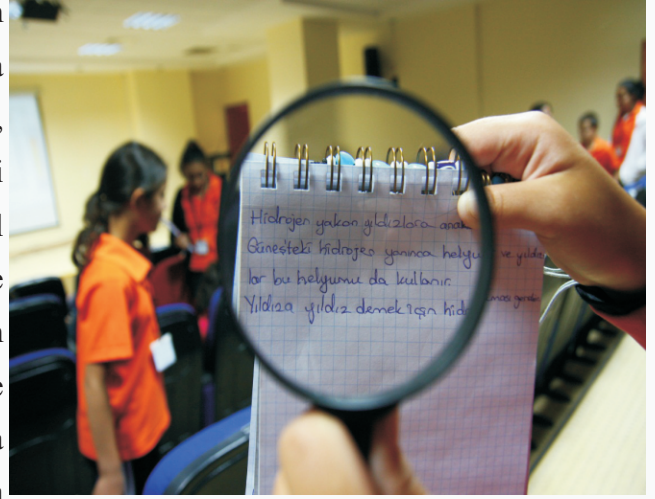 Hidrojen yakan yıldızlara anak
Güneşteki hidrojen yanınca helyu ve yıldız
lar bu helyumu da kullanır.
Yıldıza yıldız demek için hid ması gereken